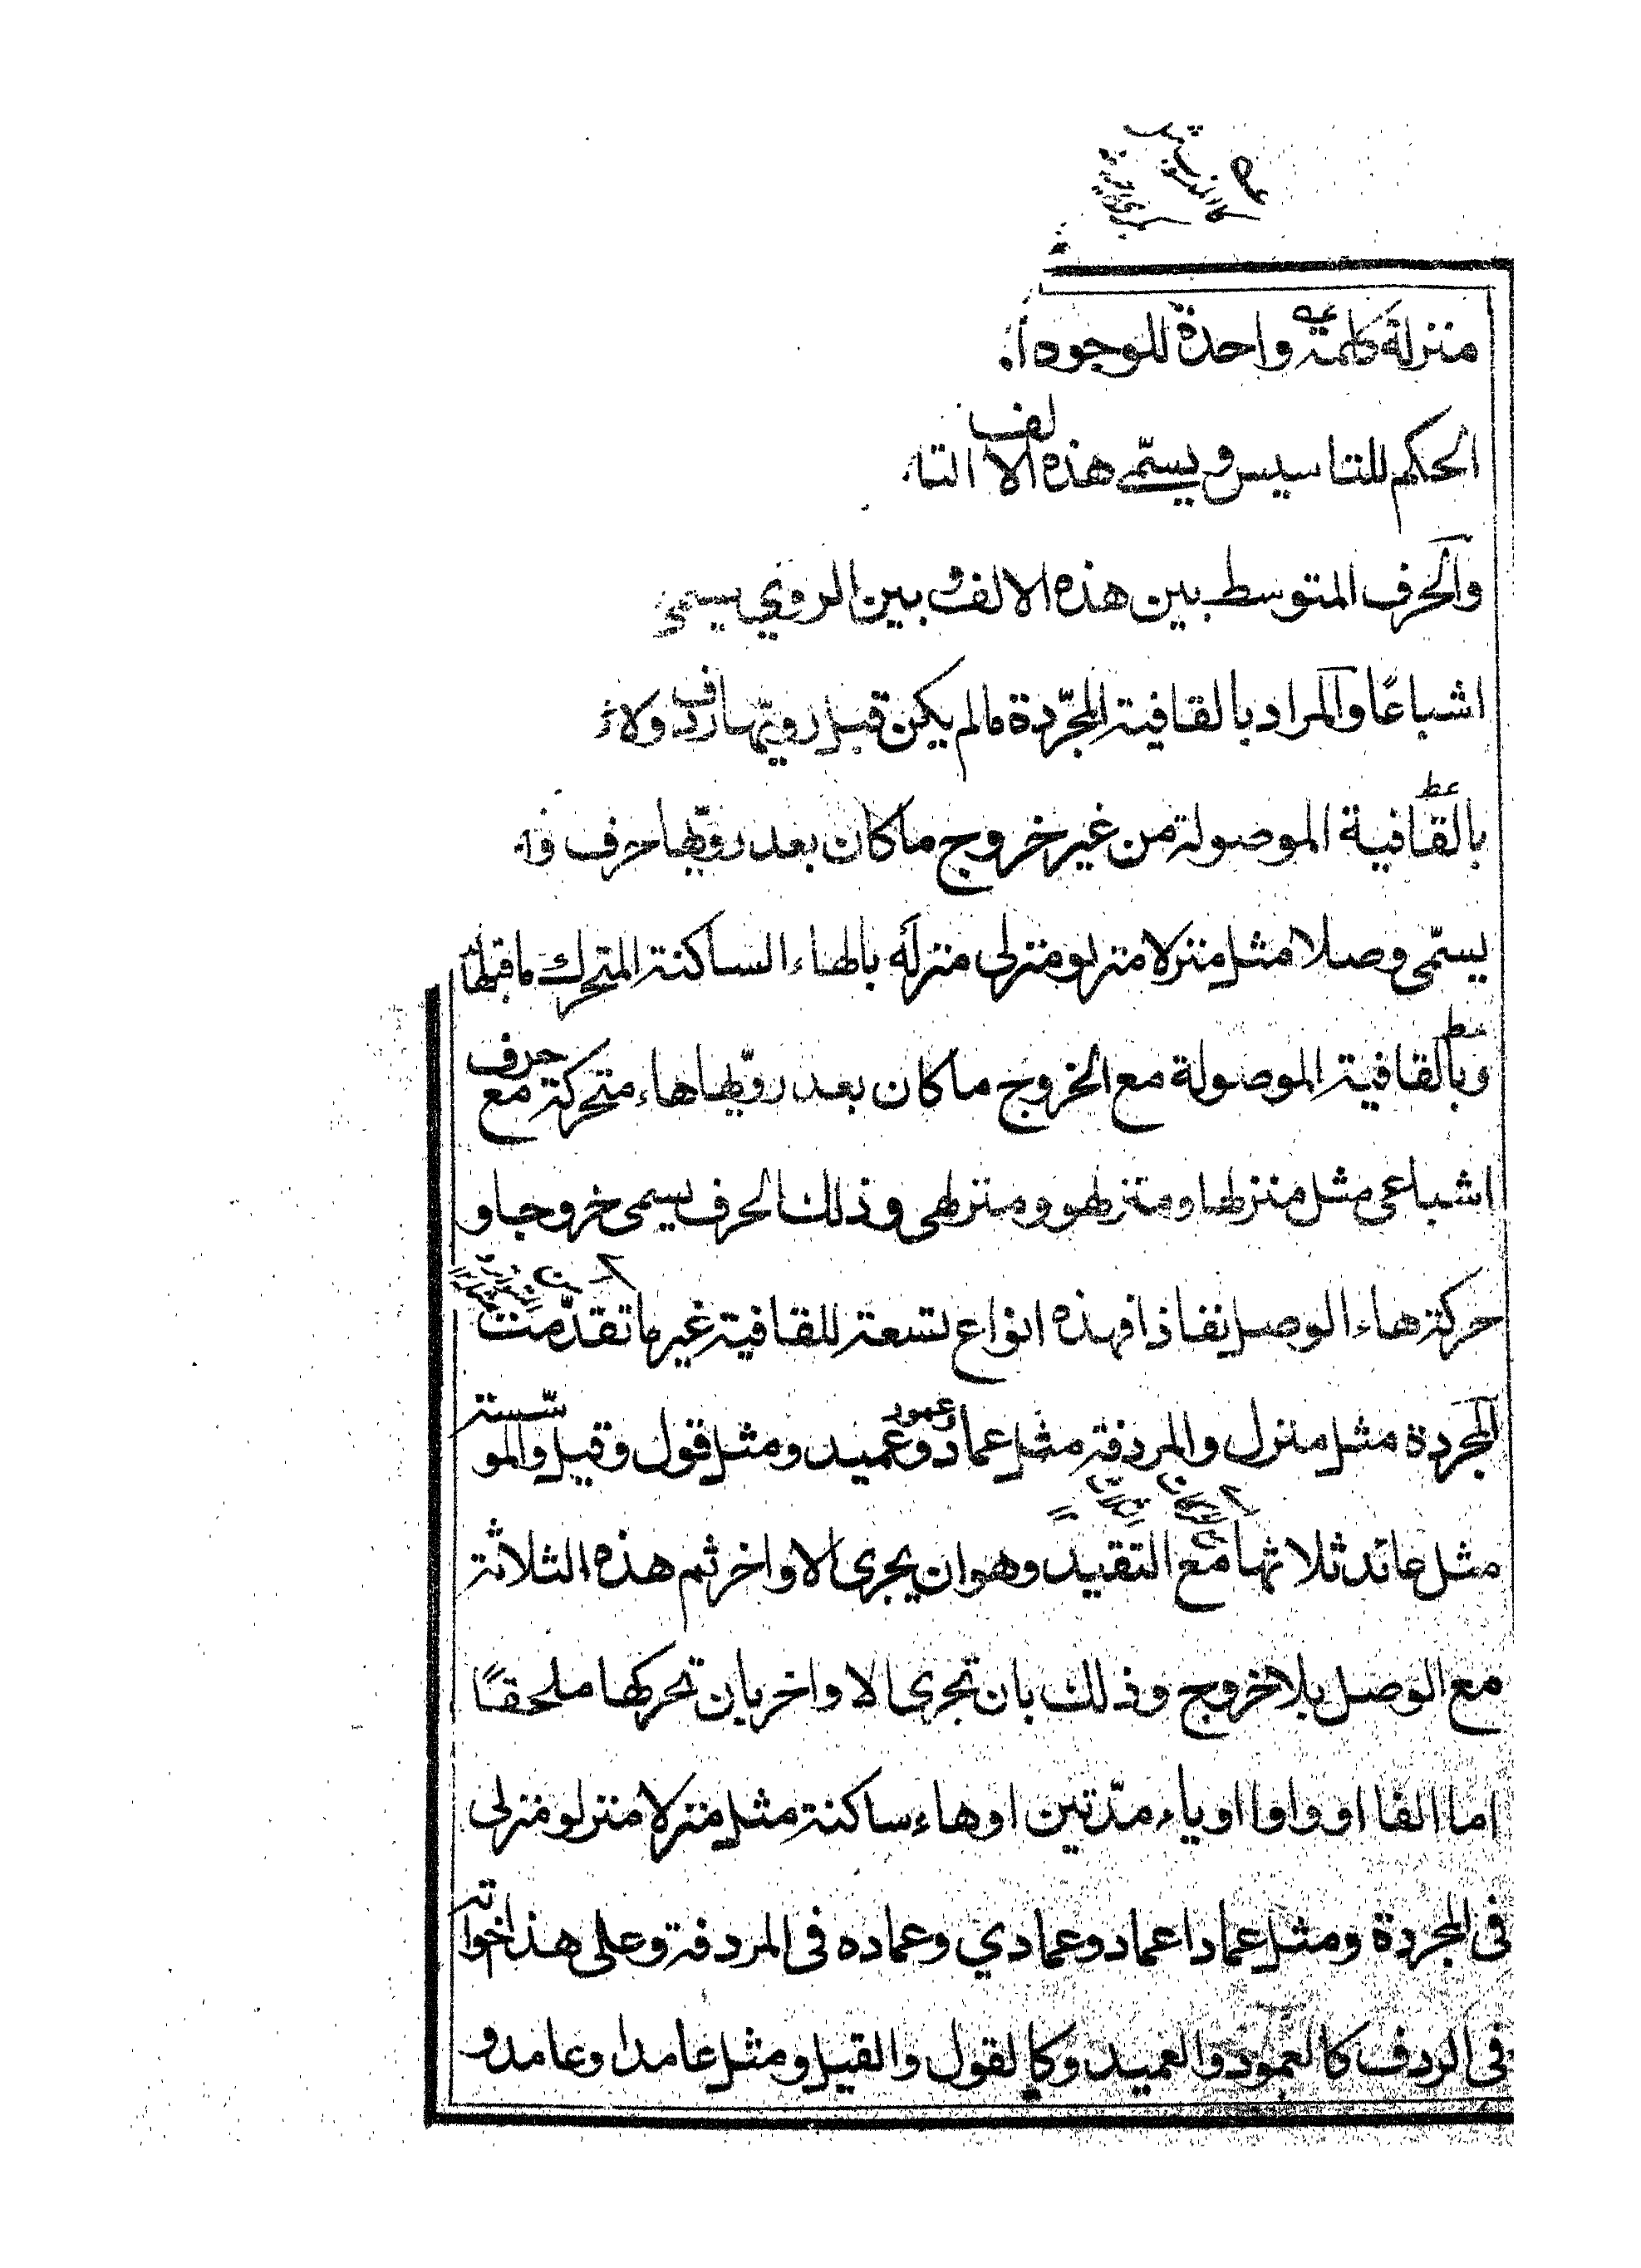 منزلة كلمة واحدة للوجوه
الحكم للتاسيس ويسمّى هذه الالف التا
والحرف المتوسط بين هذه الالف وبين الروي يسمى
اشباعًا والمراد بالقافية المجرّدة مالم يكن قبل رويّها ردف ولا
بالقافية الموصولة من غير خروج ما كان بعد رويّها حرف
يسمّى وصلا مثل منزلا منزلو منزلى منزله بالهاء الساكنة المتحرك ما قبلها
وبالقافية الموصولة مع الخروج ما كان بعد رويّها هاء متحركة مع حرف
اشباعى مثل منزلها ومنزلهو ومنزلهى وذلك الحرف يسمى خروجا و
حركة هاء الوصل نفاذا فهذه انواع تسعة للقافية غير ما تقدّمت
المجردة مثل منزل والمردفة مثل عماد وعمود وعميد ومثل قول وقيل والموسّسة
مثل عائد ثلاثتها مع التقييد وهو ان يجرى الاواخر ثم هذه الثلاثة
مع الوصل بلا خروج وذلك بان تجرى الاواخر بان تحركها ملحقًا
اما الفا او واوا او ياء مدّتين او هاء ساكنة مثل منزلا منزلو منزلى
فى المجردة ومثل عمادا عمادو عمادي وعماده فى المردفة وعلى هذا اخواته
فى الردف كالعمود والعميد وكالقول والقيل ومثل عامدا وعامدو